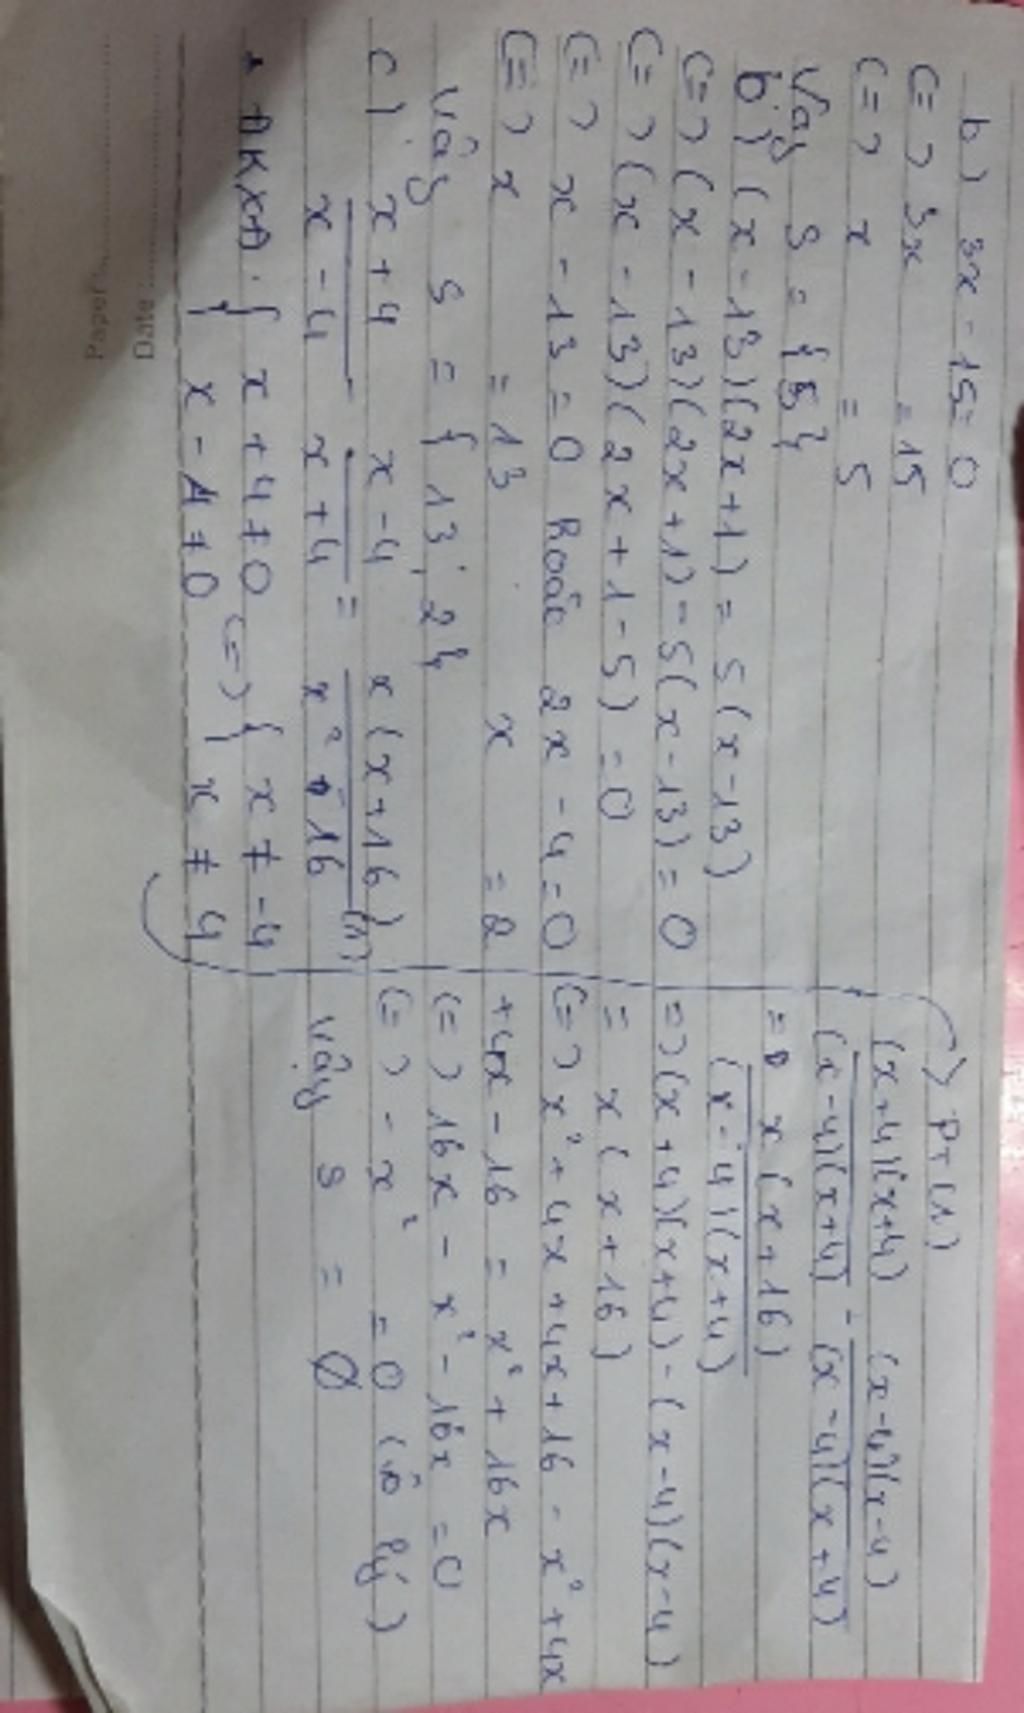 b) 3x - 15 = 0
(=) 3x = 15
(=) x = 5
Vậy S = {5}
b) (x - 13)(2x + 1) = 5(x - 13)
(=) (x - 13)(2x + 1) - 5(x - 13) = 0
(=) (x - 13)(2x + 1 - 5) = 0
(=) x - 13 = 0 hoặc 2x - 4 = 0
(=) x = 13 x = 2
Vậy S = {13; 2}
c) x + 4 x - 4 x(x + 16)
x - 4 - x + 4 = x² - 16 (1)
* ĐKXĐ: { x + 4 ≠ 0 (=) { x ≠ -4
{ x - 4 ≠ 0 { x ≠ 4
PT(1)
(x + 4)(x + 4) (x - 4)(x - 4)
(x - 4)(x + 4) - (x - 4)(x + 4)
= x(x + 16)
(x - 4)(x + 4)
=) (x + 4)(x + 4) - (x - 4)(x - 4)
= x(x + 16)
(=) x² + 4x + 4x + 16 - x² + 4x
+ 4x - 16 = x² + 16x
(=) 16x - x² - 16x = 0
(=) - x² = 0 (vô lý)
Vậy S = Ø
Paper:
Date: